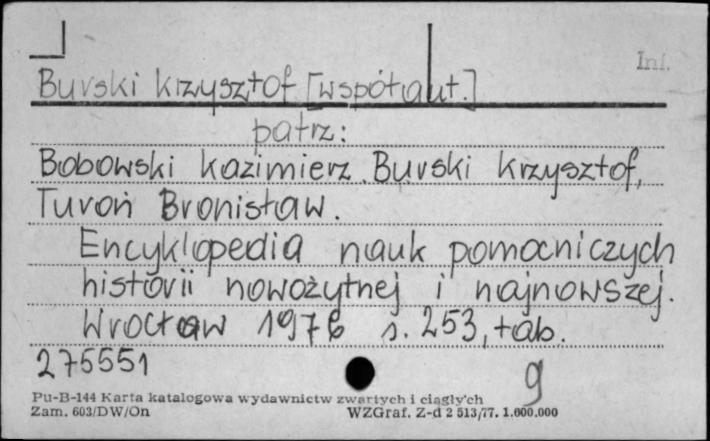 Inf.
Burski Krzysztof [współaut.]
patrz:
Bobowski Kazimierz, Burski Krzysztof,
Turoń Bronisław.
Encyklopedia nauk pomocniczych
historii nowożytnej i najnowszej.
Wrocław 1976 s. 253, tab.
275551
g
Pu-B-144 Karta katalogowa wydawnictw zwartych i ciągłych
Zam. 603/DW/On WZGraf. Z-d 2 513/77. 1.600.000